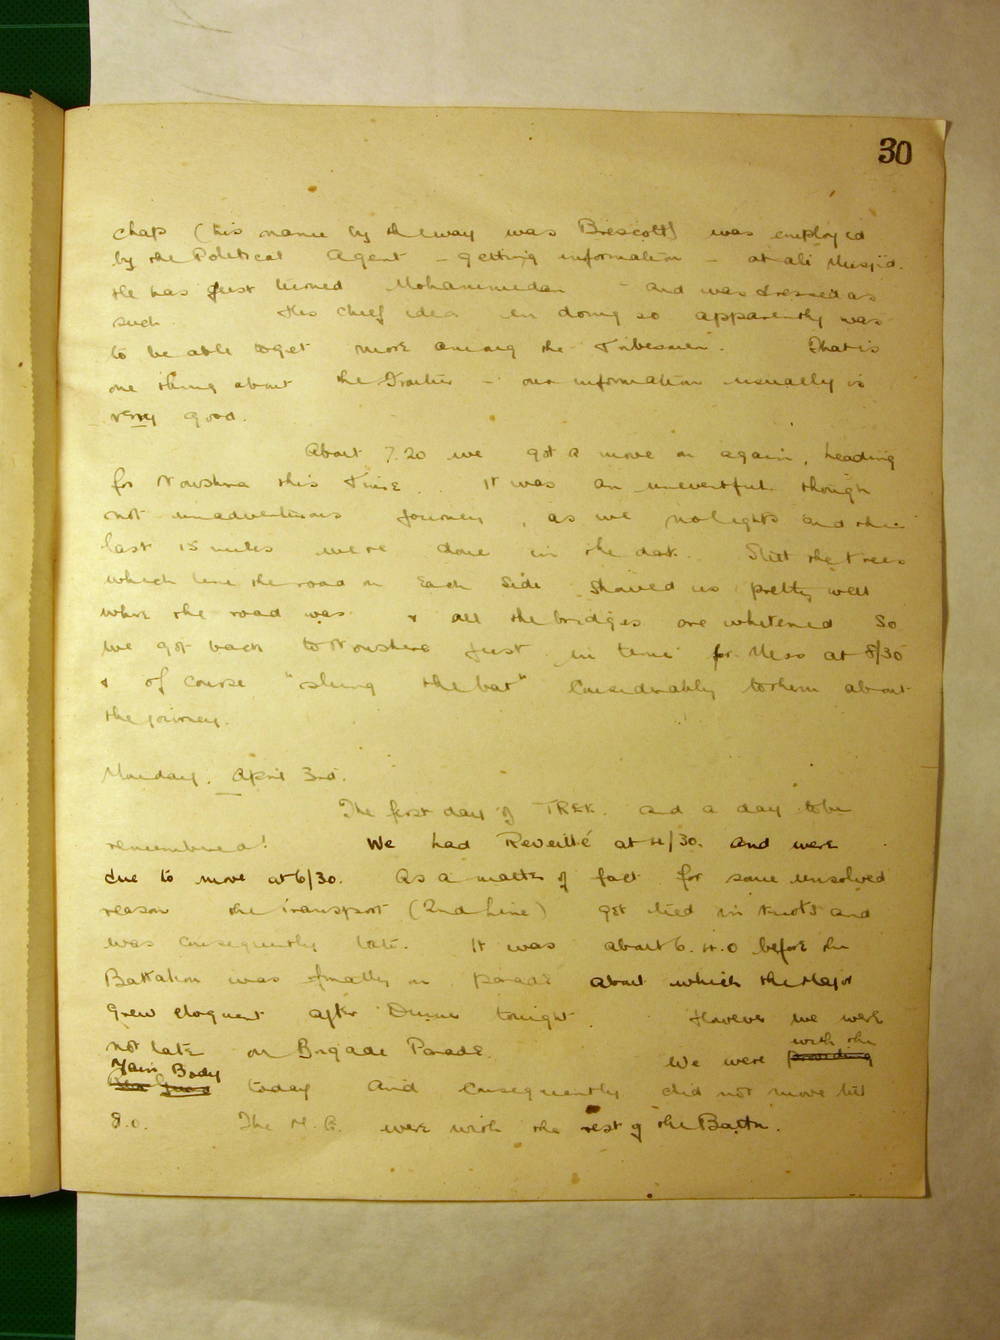 30
chap (his name by the way was Prescott) was employed
by the Political Agent - getting information - at Ali Musjid.
He has just turned Mohammedan - and was dressed as
such. His chief idea in doing so apparently was
to be able to get more among the Tribesmen. That is
one thing about the Frontier - our information usually is
very good.
About 7.20 we got a move on again, heading
for Nowshera this time. It was an uneventful though
not unadventurous journey, as we no lights and the
last 15 miles were done in the dark. Still the trees
which line the road on each side showed us pretty well
where the road was & all the bridges are whitened So
we got back to Nowshera just in time for Mess at 8/30
& of course "slung the bat" considerably to them about
the journey.
Monday. April 3rd.
The first day of TREK. and a day to be
remembered! We had Reveillé at 4/30. and were
due to move at 6/30. As a matter of fact for some unsolved
reason the transport (2nd Line) got tied in knots and
was consequently late. It was about 6.40 before the
Battalion was finally on parade about which the Major
grew eloquent after Dinner tonight. However we were
not late on Brigade Parade. We were providing with the
Main Body today and consequently did not move till
8.0. The M.G. were with the rest of the Battn.